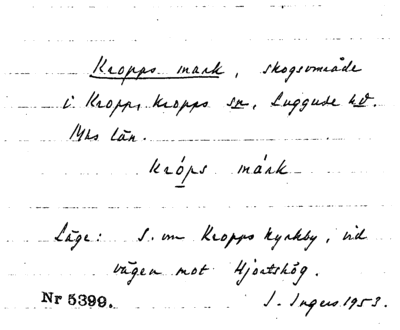 Kropps mark, skogsområde
i Kropp, Kropps sn, Luggude hd.
Mhs län.
Króps márk
Läge: S. om Kropps kyrkby, vid
vägen mot Hjortshög.
Nr 5399. I. Ingers 1953.